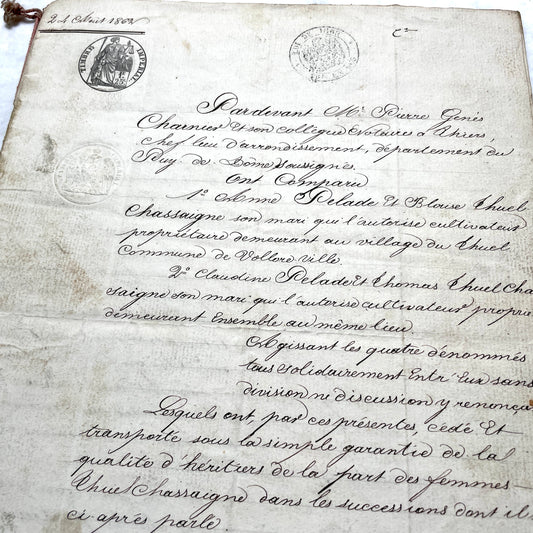 24 Août 1862
TIMBRE IMPERIAL
Pardevant Me Pierre Genès
Charnier Et son collègue Notaires à Thiers,
chef lieu d'arrondissement, département du
Puy de Dôme Soussignés.
Ont Comparu
1º Anne Pelade Et Bloise Thuel
Chassaigne son mari qui l'autorise cultivateurs
propriétaire demeurant au village du Thuel
Commune de Vollore Ville.
2º Claudine Pelade Et Thomas Thuel Cha
ssaigne son mari qui l'autorise cultivateurs proprié
demeurant Ensemble au même lieu.
Agissant les quatre dénommés
tous solidairement Entr'Eux sans
division ni discussion y renonça
Lesquels ont, par ces présentes, cédé Et
transporté sous la simple garantie de la
qualité d'héritiers de la part des femmes
Thuel Chassaigne dans les successions dont il
ci-après parlé